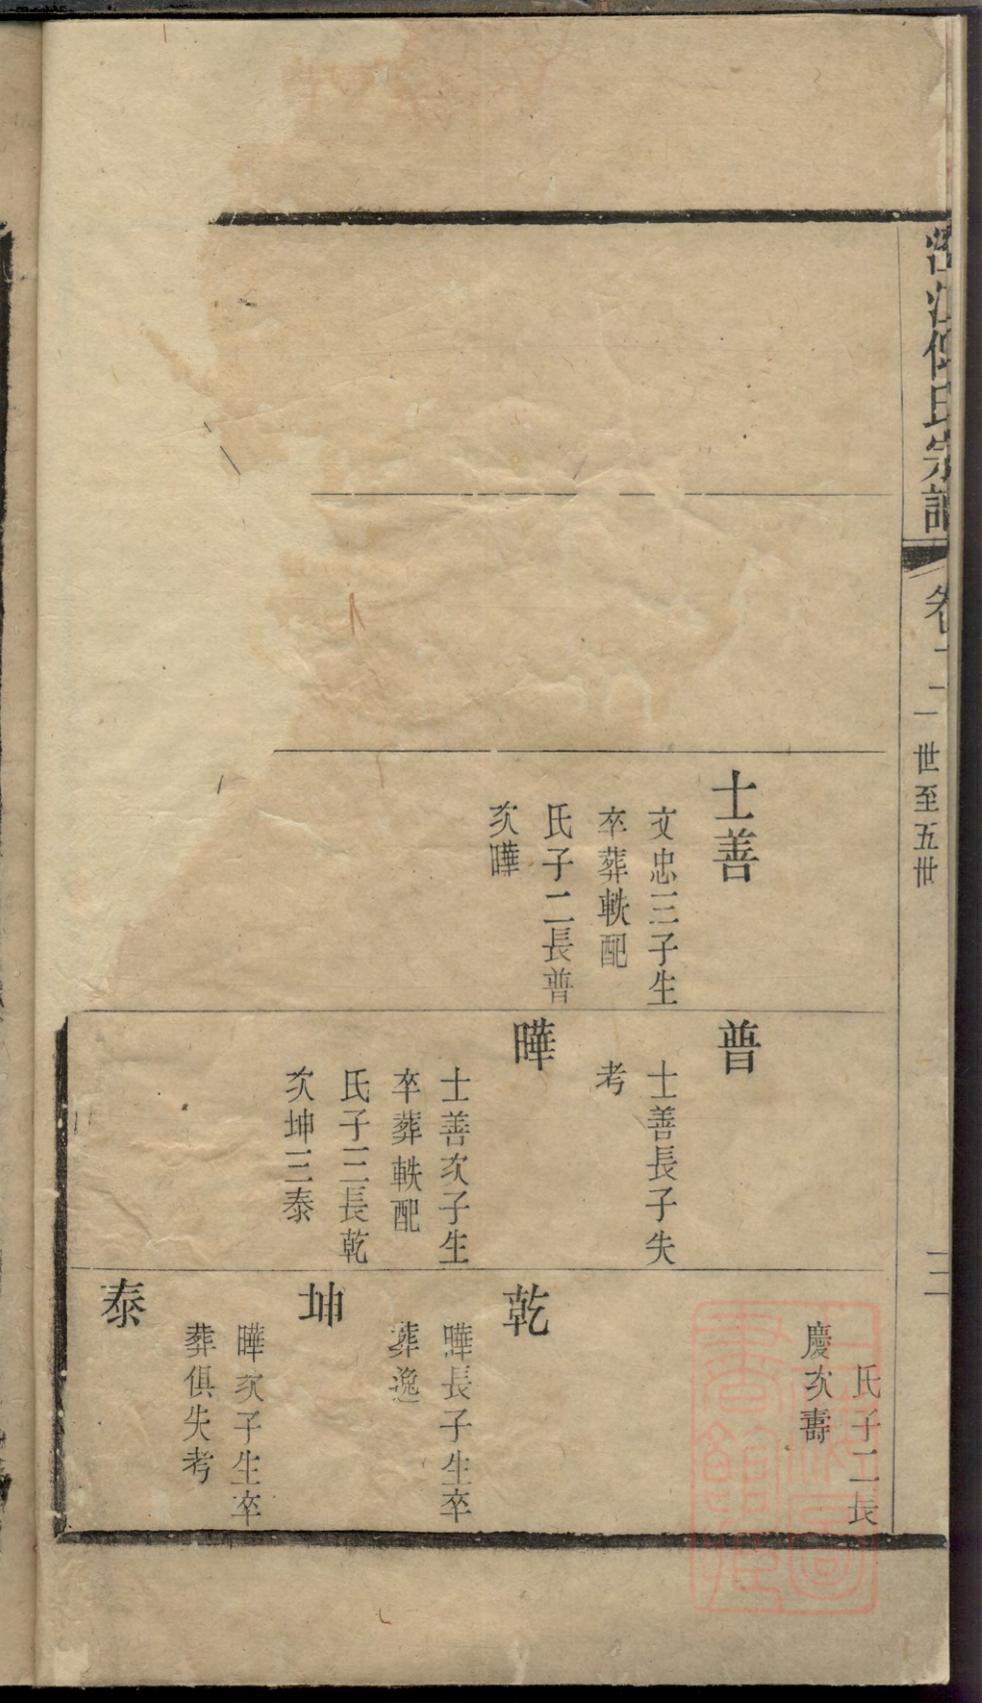 江傅氏宗譜
卷二
二世至五世
士善
文忠三子生
卒葬軼配
氏子二長普
次曄
普
士善長子失
考
曄
士善次子生
卒葬軼配
氏子三長乾
次坤三泰
氏子二長
慶次壽
乾
曄長子生卒
葬逸
坤
曄次子生卒
葬俱失考
泰